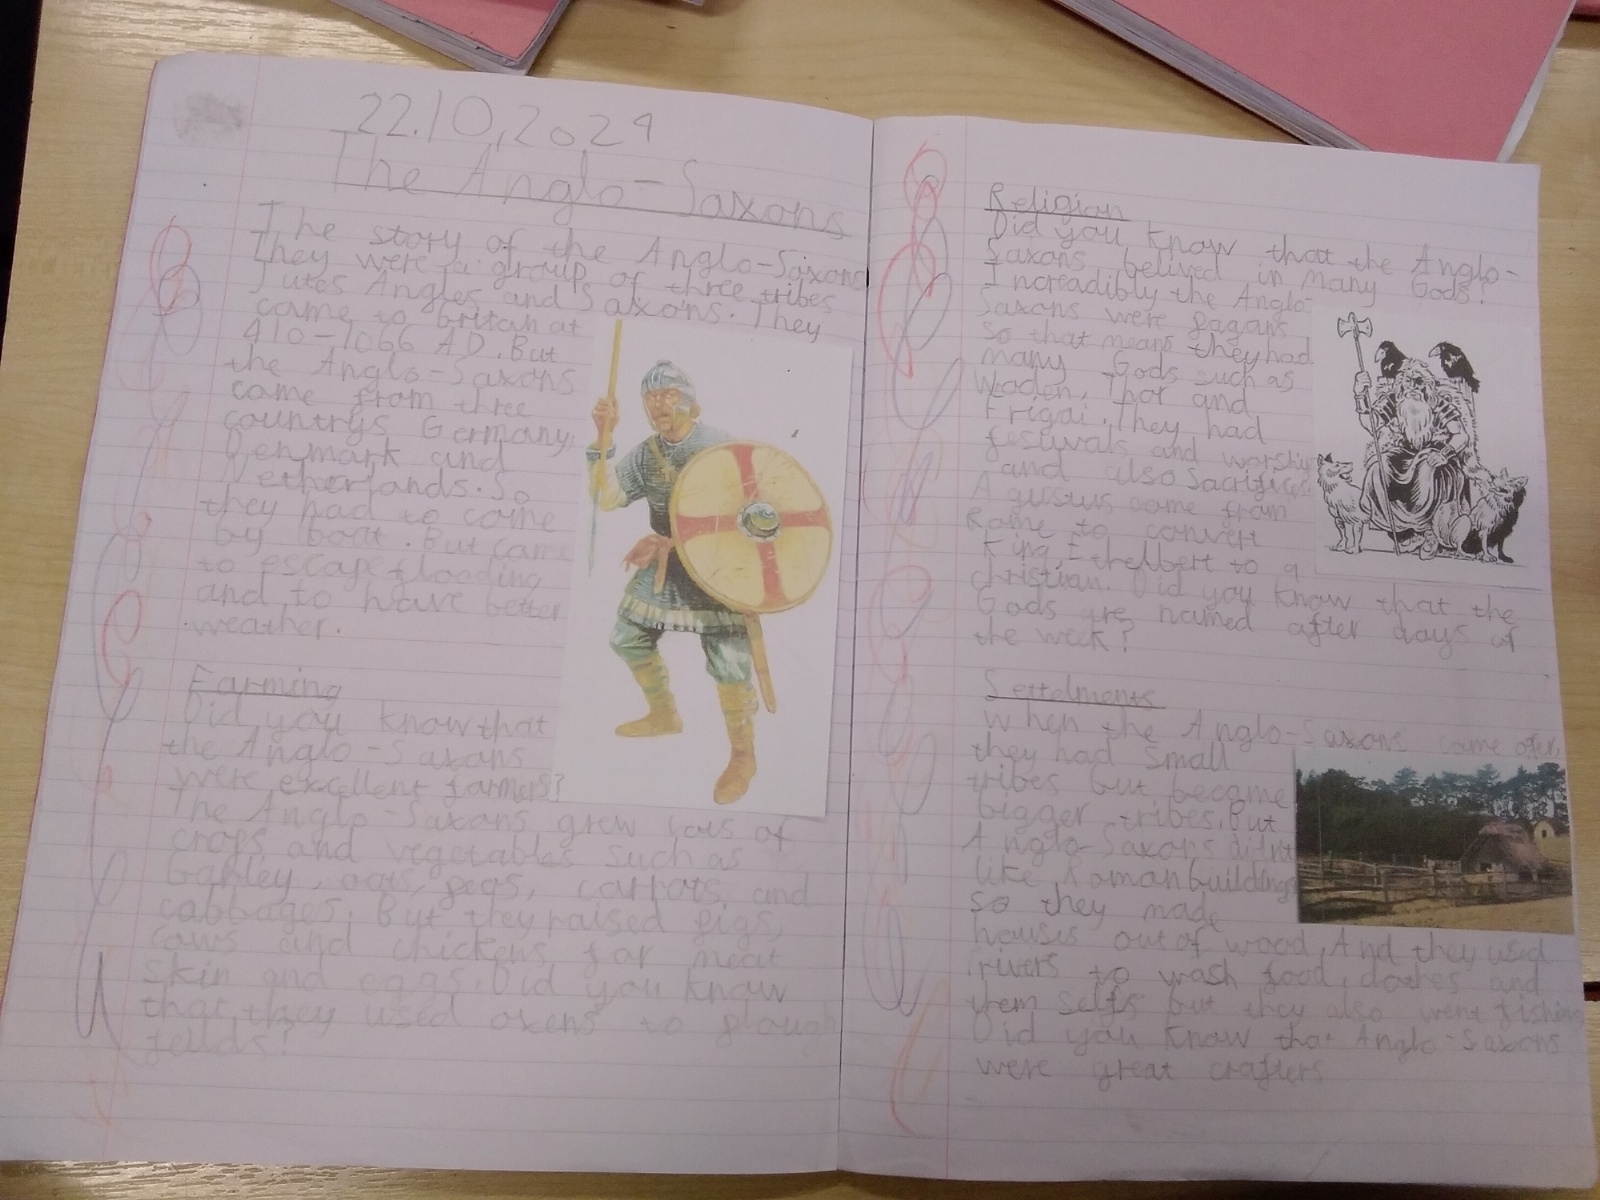 22.10.2024
The Anglo-Saxons
The story of the Anglo-Saxons
They were a group of three tribes
Jutes Angles and Saxons. They
came to britan at
410-1066 AD. But
the Anglo-Saxons
came from three
countrys Germany,
Denmark and
Netherlands. So
they had to come
by boat. But came
to escape flooding
and to have better
weather.
Farming
Did you know that
the Anglo-Saxons
were excellent farmers?
The Anglo-Saxons grew lots of
crops and vegetables such as
barley, oats, peas, carrots and
cabbages. But they raised pigs,
cows and chickens for meat
skin and eggs. Did you know
that they used oxens to plough
feilds?
Religion
Did you know that the Anglo-
Saxons belived in many Gods?
Increadibly the Anglo-
Saxons were pagans
so that means they had
many Gods such as
Woden, Thor and
Frigai. They had
festivals and worship
and also Sacrifices.
Agustus came from
Rome to convert
King Ethelbert to a
christian. Did you know that the
Gods are named after days of
the week?
Settelments
When the Anglo-Saxons came ofer,
they had small
tribes but became
bigger tribes. But
Anglo-Saxons didn't
like Roman buildings
so they made
houses out of wood. And they used
rivers to wash food, clothes and
them selfs but they also went fishing
Did you know that Anglo-Saxons
were great crafters